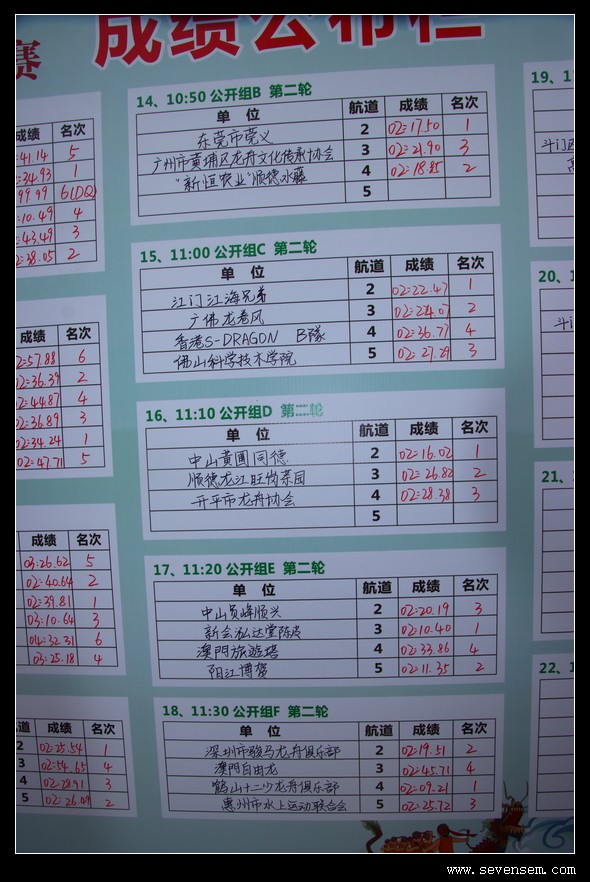 赛
成绩公布栏
成绩 名次
41.14 5
34.93 1
99.99 6(DQ)
10.49 4
43.49 3
38.05 2
成绩 名次
02:57.88 6
02:36.39 2
02:44.87 4
02:36.89 3
02:34.24 1
02:47.71 5
成绩 名次
03:26.62 5
02:40.64 2
02:39.81 1
03:10.64 3
04:32.31 6
03:25.18 4
道 成绩 名次
2 02:25.54 1
3 02:54.65 4
4 02:28.91 3
5 02:26.09 2
14、10:50 公开组B 第二轮
单 位 航道 成绩 名次
东莞市莞义 2 02:17.50 1
广州市黄埔区龙舟文化传承协会 3 02:21.90 3
"新恒农业"顺德水藤 4 02:18.85 2
5
15、11:00 公开组C 第二轮
单 位 航道 成绩 名次
江门江海兄弟 2 02:22.47 1
广佛龙卷风 3 02:24.07 2
香港S-DRAGON B隊 4 02:36.77 4
佛山科学技术学院 5 02:27.29 3
16、11:10 公开组D 第二轮
单 位 航道 成绩 名次
中山黄圃同德 2 02:16.02 1
顺德龙江旺岗菜团 3 02:26.82 2
开平市龙舟协会 4 02:28.38 3
5
17、11:20 公开组E 第二轮
单 位 航道 成绩 名次
中山贠峰顺兴 2 02:20.19 3
新会泓达堂陈皮 3 02:10.40 1
澳門旅遊塔 4 02:33.86 4
阳江博骜 5 02:11.35 2
18、11:30 公开组F 第二轮
单 位 航道 成绩 名次
深圳市骏马龙舟俱乐部 2 02:19.51 2
澳門自由龙 3 02:45.71 4
鹤山十二少龙舟俱乐部 4 02:09.21 1
惠州市水上运动联合会 5 02:25.72 3
19、1
斗门
20、
斗门
21、
22、
www.sevensem.com